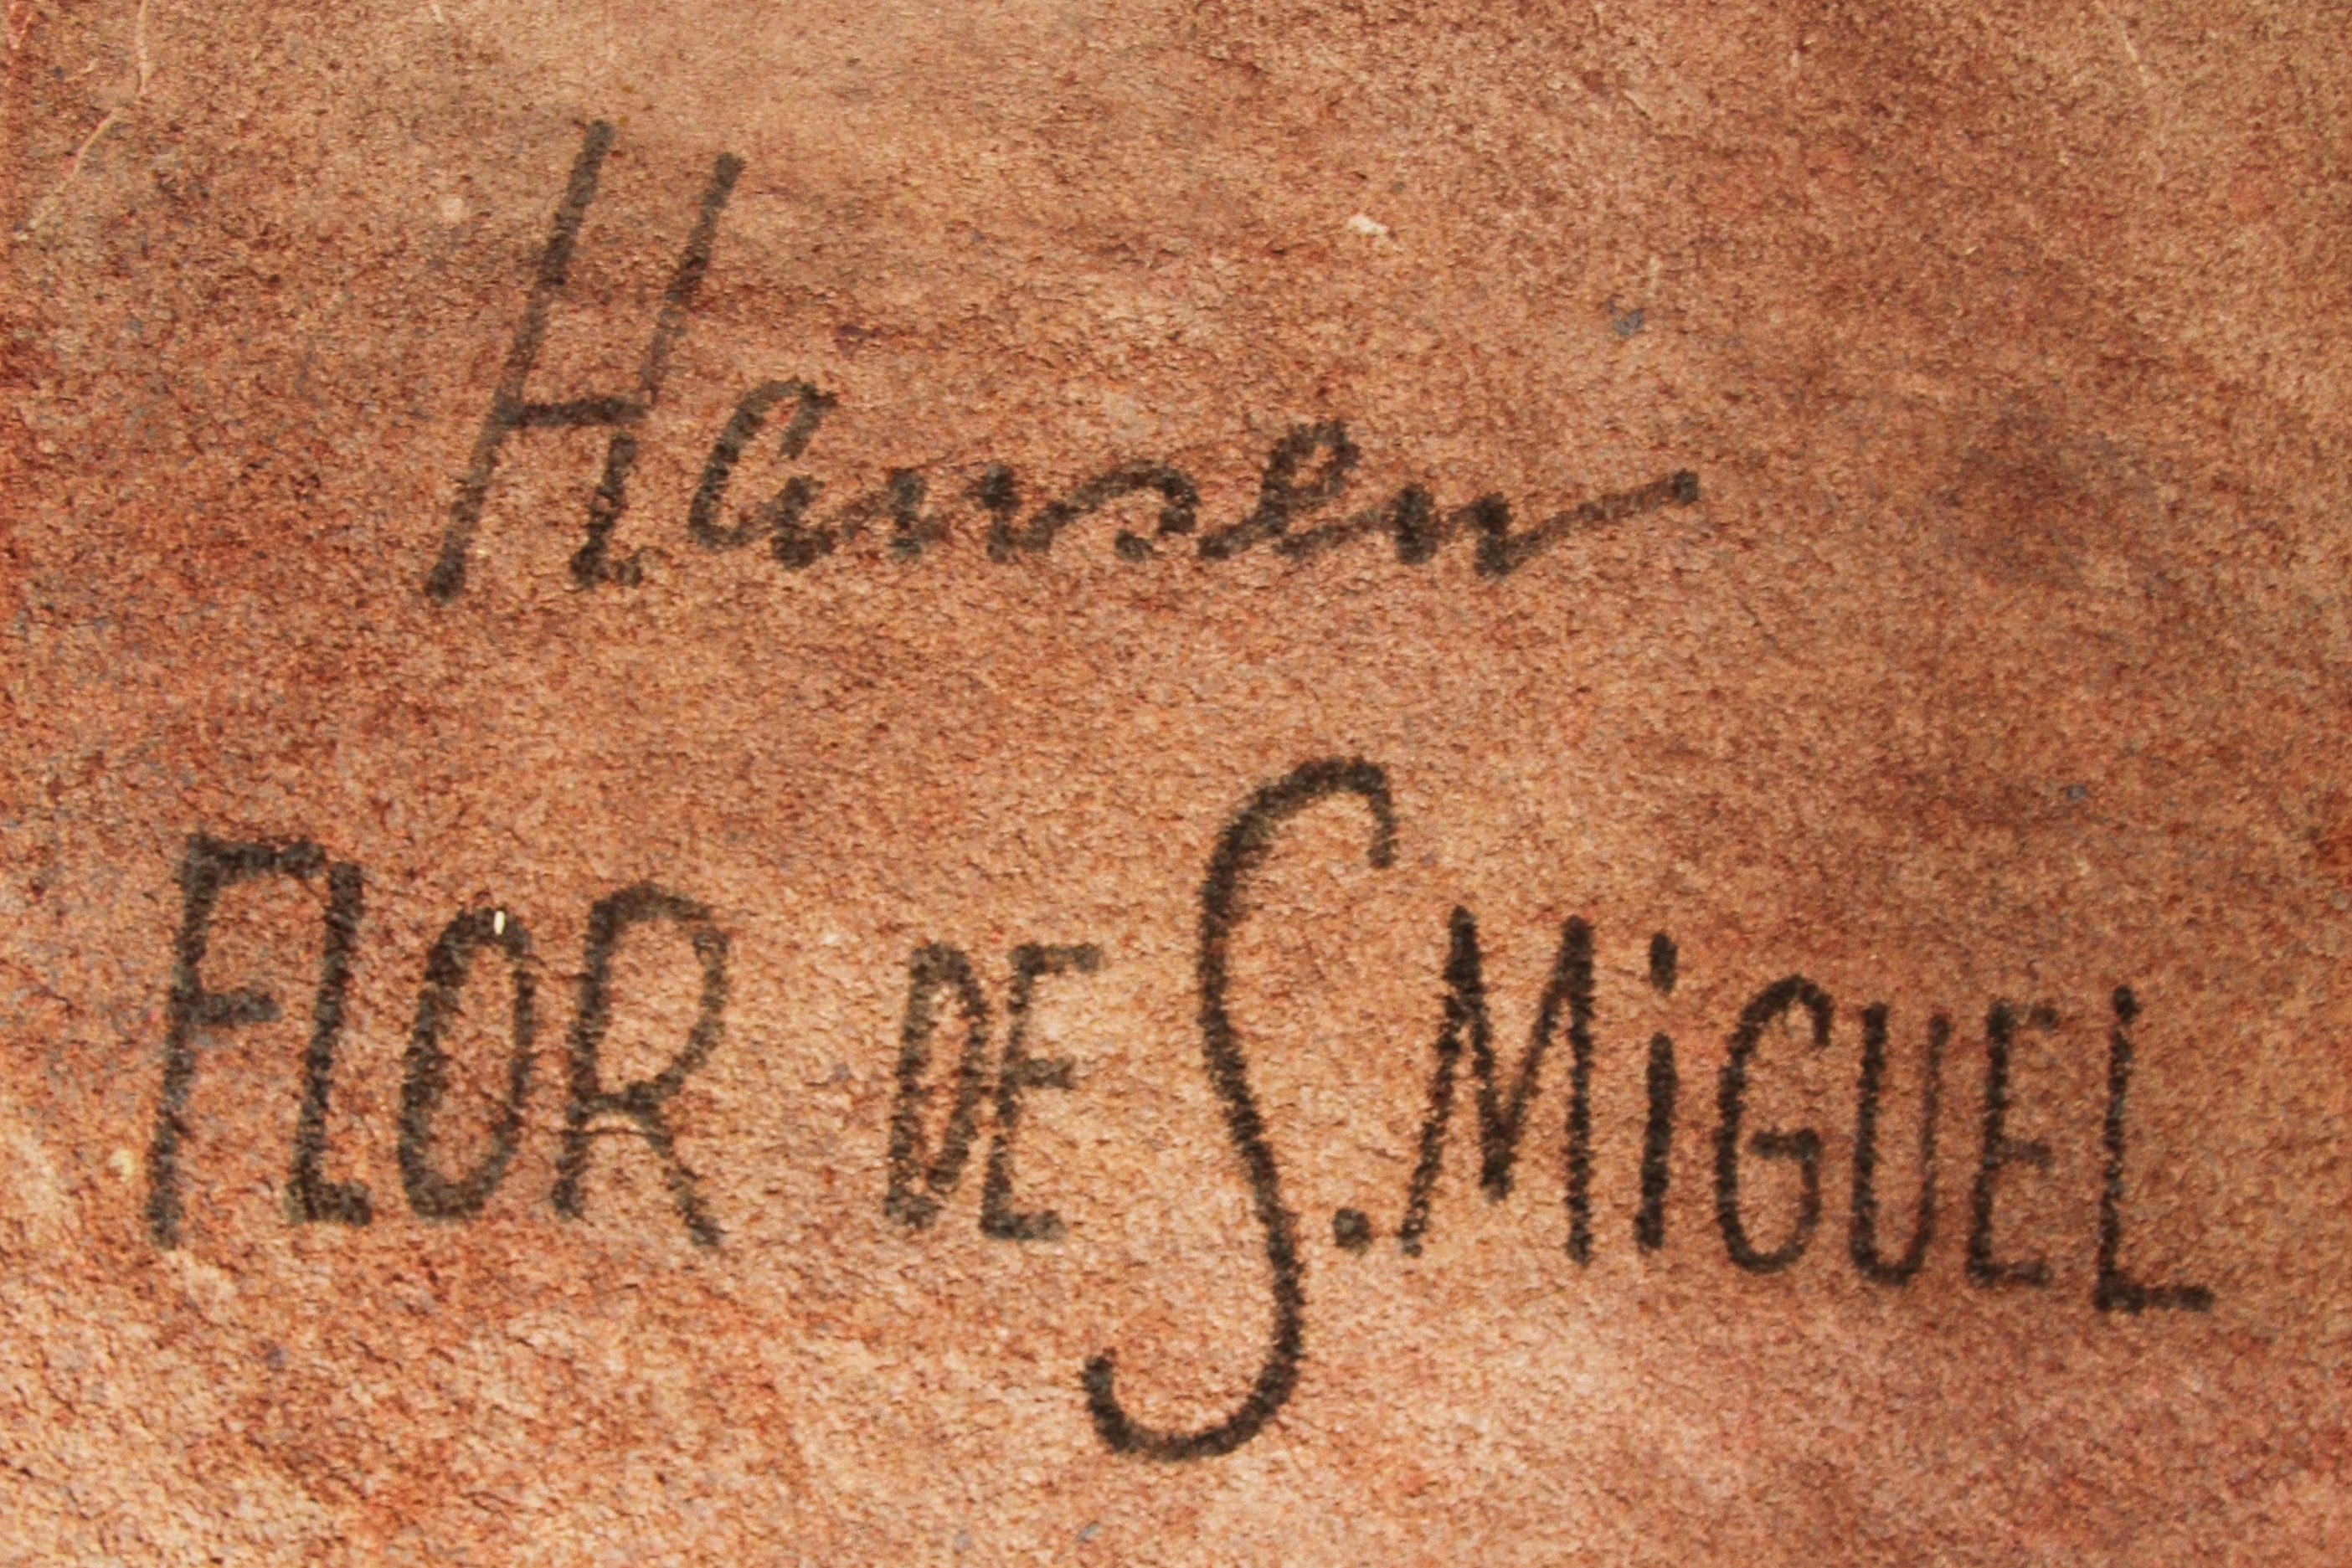 Hansen
FLOR DE S. MiGUEL